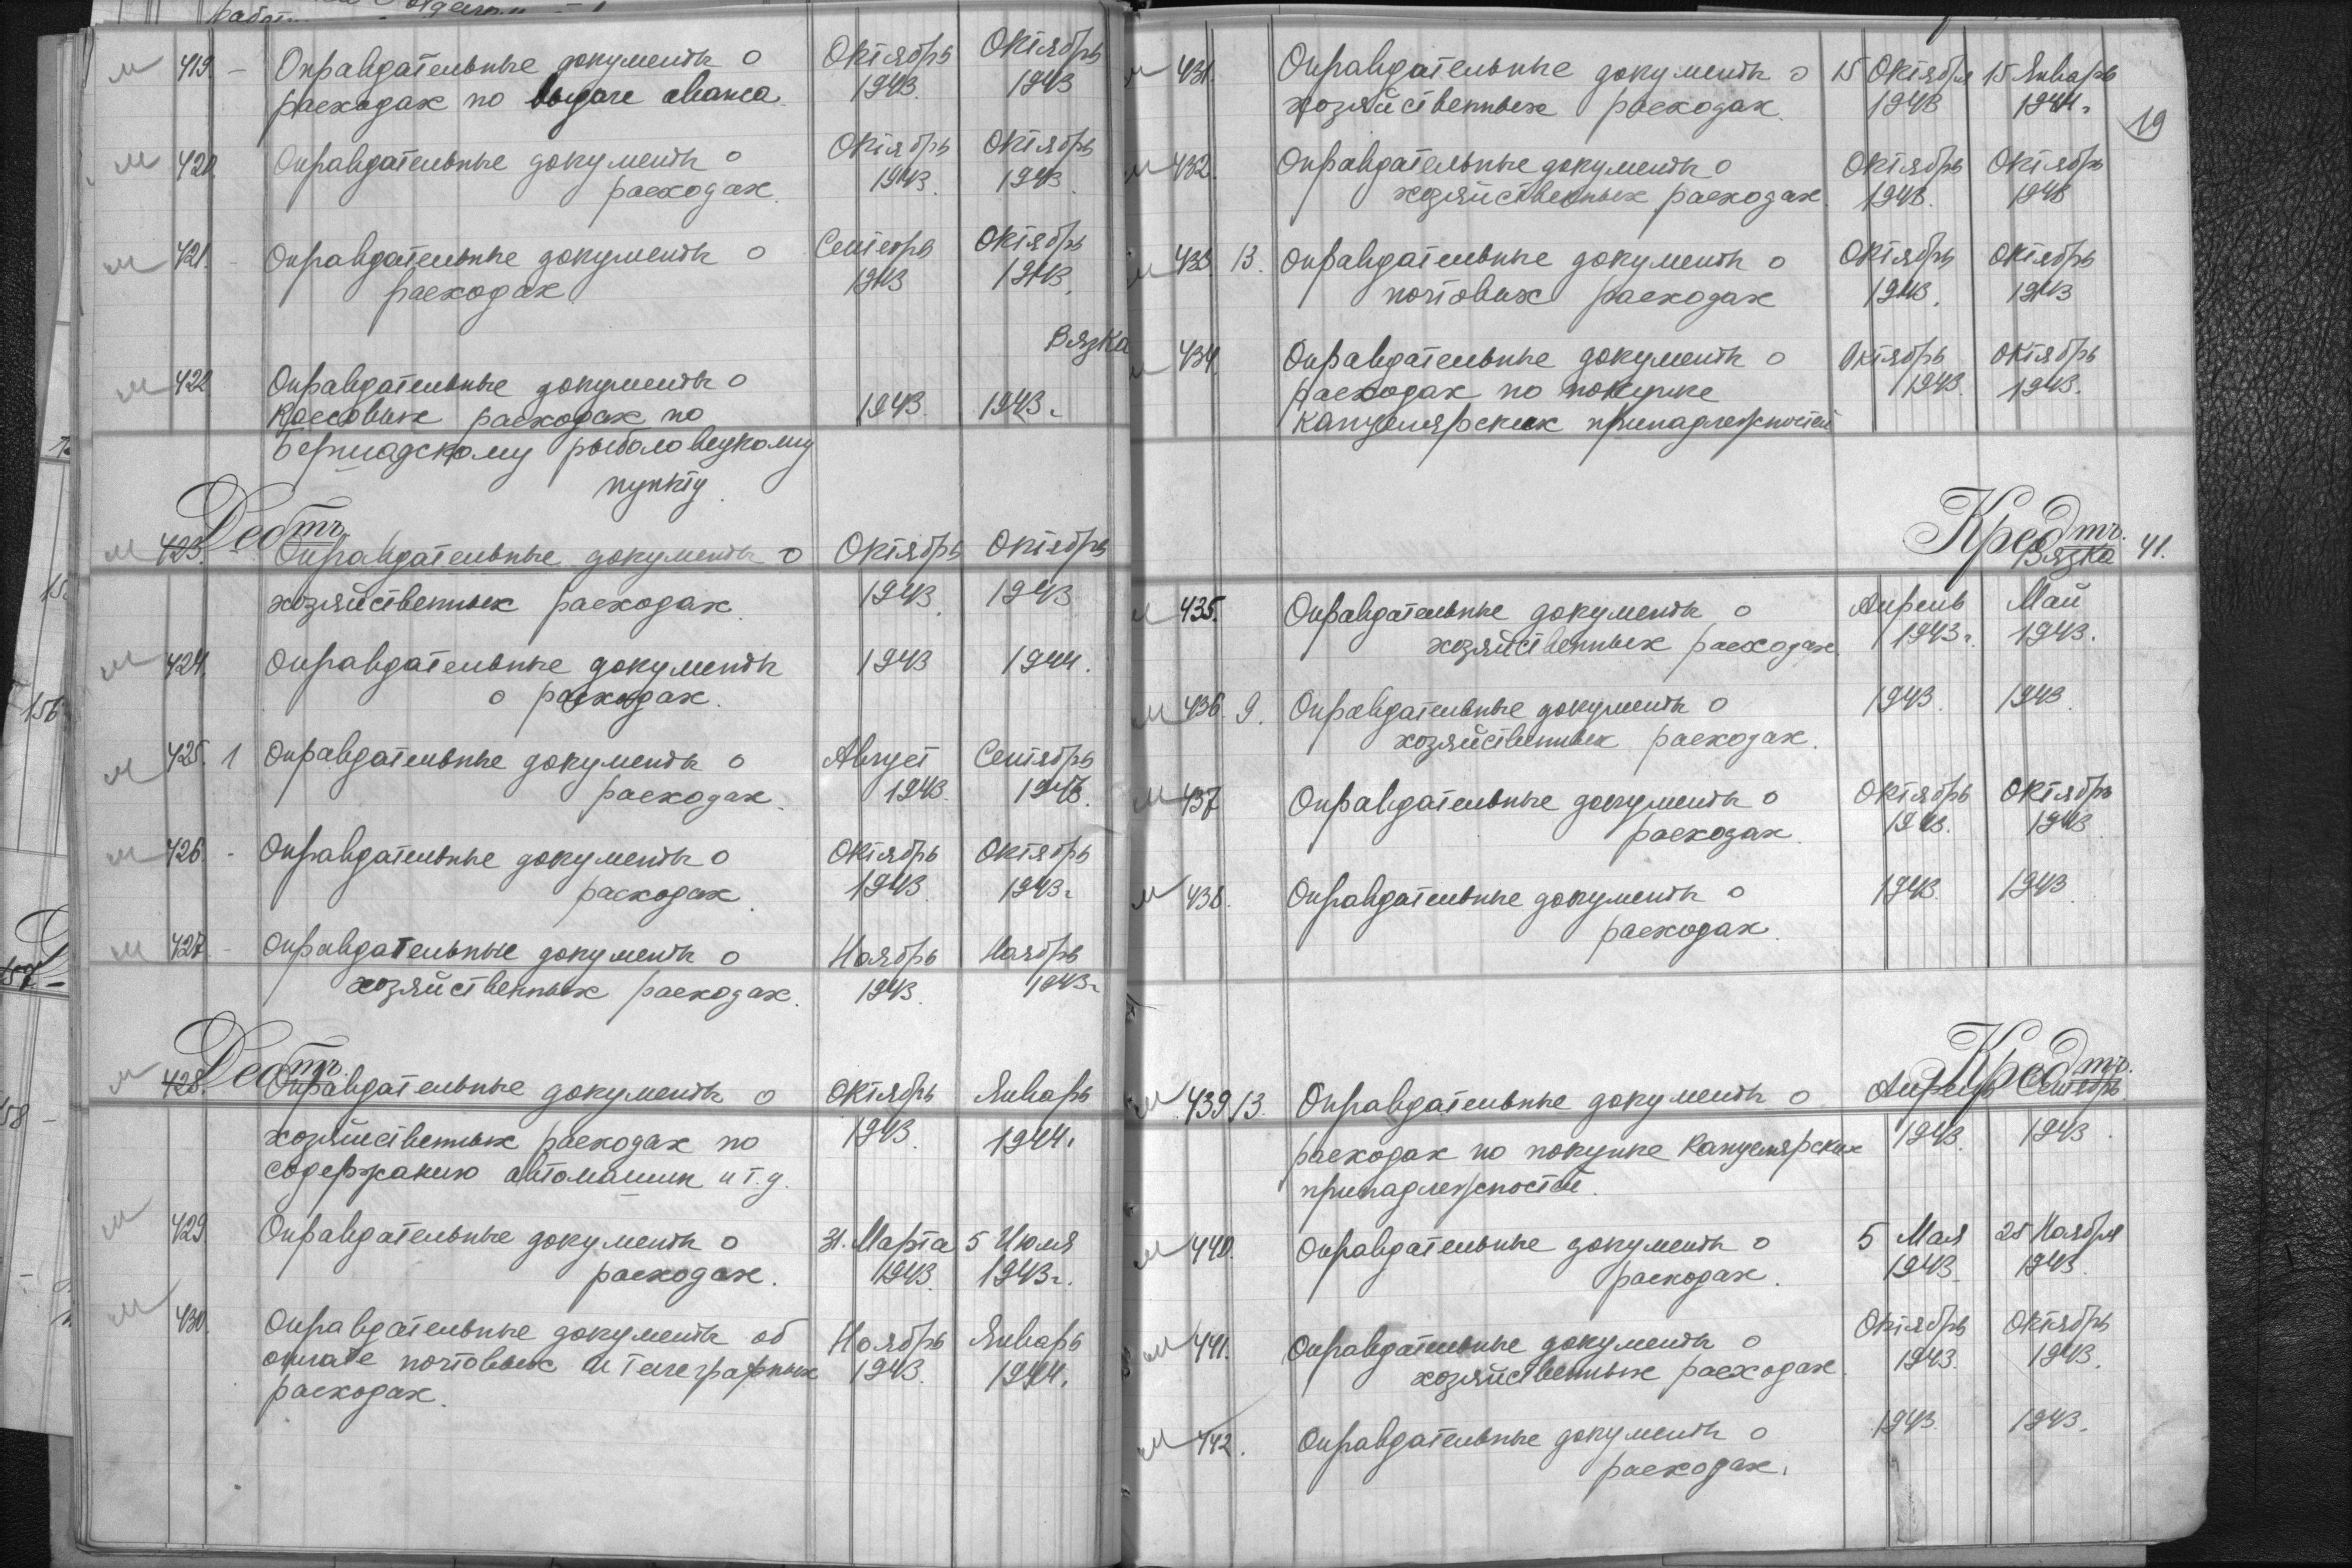 419. – Оправдательные документы о Октябрь Октябрь
расходах по выдаче аванса. 1943. 1943
420. Оправдательные документы о Октябрь Октябрь
расходах. 1943. 1943.
421. – Оправдательные документы о Сентябрь Октябрь
расходах. 1943 1943.
Вязка
422 Оправдательные документы о
кассовых расходах по 1943. 1943 г.
Бершадскому рыболовецкому
пункту.
Дебтъ
423. Оправдательные документы о Октябрь Октябрь
хозяйственных расходах. 1943. 1943
424. Оправдательные документы 1943 1944.
о расходах.
425. 1 Оправдательные документы о Август Сентябрь
расходах. 1943. 1943.
426. - Оправдательные документы о Октябрь Октябрь
расходах. 1943. 1943 г.
427. - Оправдательные документы о Ноябрь Ноябрь
хозяйственных расходах. 1943. 1943 г.
Дебтъ.
428. Оправдательные документы о Октябрь Январь
хозяйственных расходах по 1943. 1944.
содержанию автомашин и т.д.
429 Оправдательные документы о 31. Марта 5 Июля
расходах. 1943. 1943 г.
430. Оправдательные документы об Ноябрь Январь
оплате почтовых и телеграфных 1943. 1944.
расходах.
19
431. Оправдательные документы о 15 Октября 15 Январь
хозяйственных расходах. 1943 1944 г.
432. Оправдательные документы о Октябрь Октябрь
хозяйственных расходах. 1943. 1943
433. 13. Оправдательные документы о Октябрь Октябрь
почтовых расходах 1943. 1943
434. Оправдательные документы о Октябрь Октябрь
расходах по покупке 1943. 1943.
канцелярских принадлежностей
Кредтъ.
Вязка 41.
435. Оправдательные документы о Апрель Май
хозяйственных расходах. 1943 г. 1943.
436. 9. Оправдательные документы о 1943. 1943.
хозяйственных расходах.
437 Оправдательные документы о Октябрь Октябрь
расходах. 1943. 1943.
438. Оправдательные документы о 1943. 1943.
расходах.
Кредтъ.
439 13. Оправдательные документы о Апрель Сентябрь
расходах по покупке канцелярских 1943. 1943.
принадлежностей.
440. Оправдательные документы о 5 Мая 25 Ноября
расходах. 1943. 1943.
441. Оправдательные документы о Октябрь Октябрь
хозяйственных расходах. 1943. 1943.
442. Оправдательные документы о 1943. 1943.
расходах.